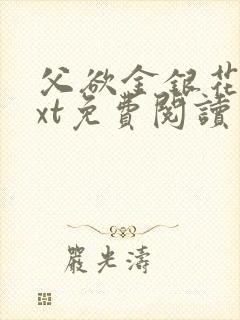 父欲金銀花
xt免費閱讀
嚴光濤